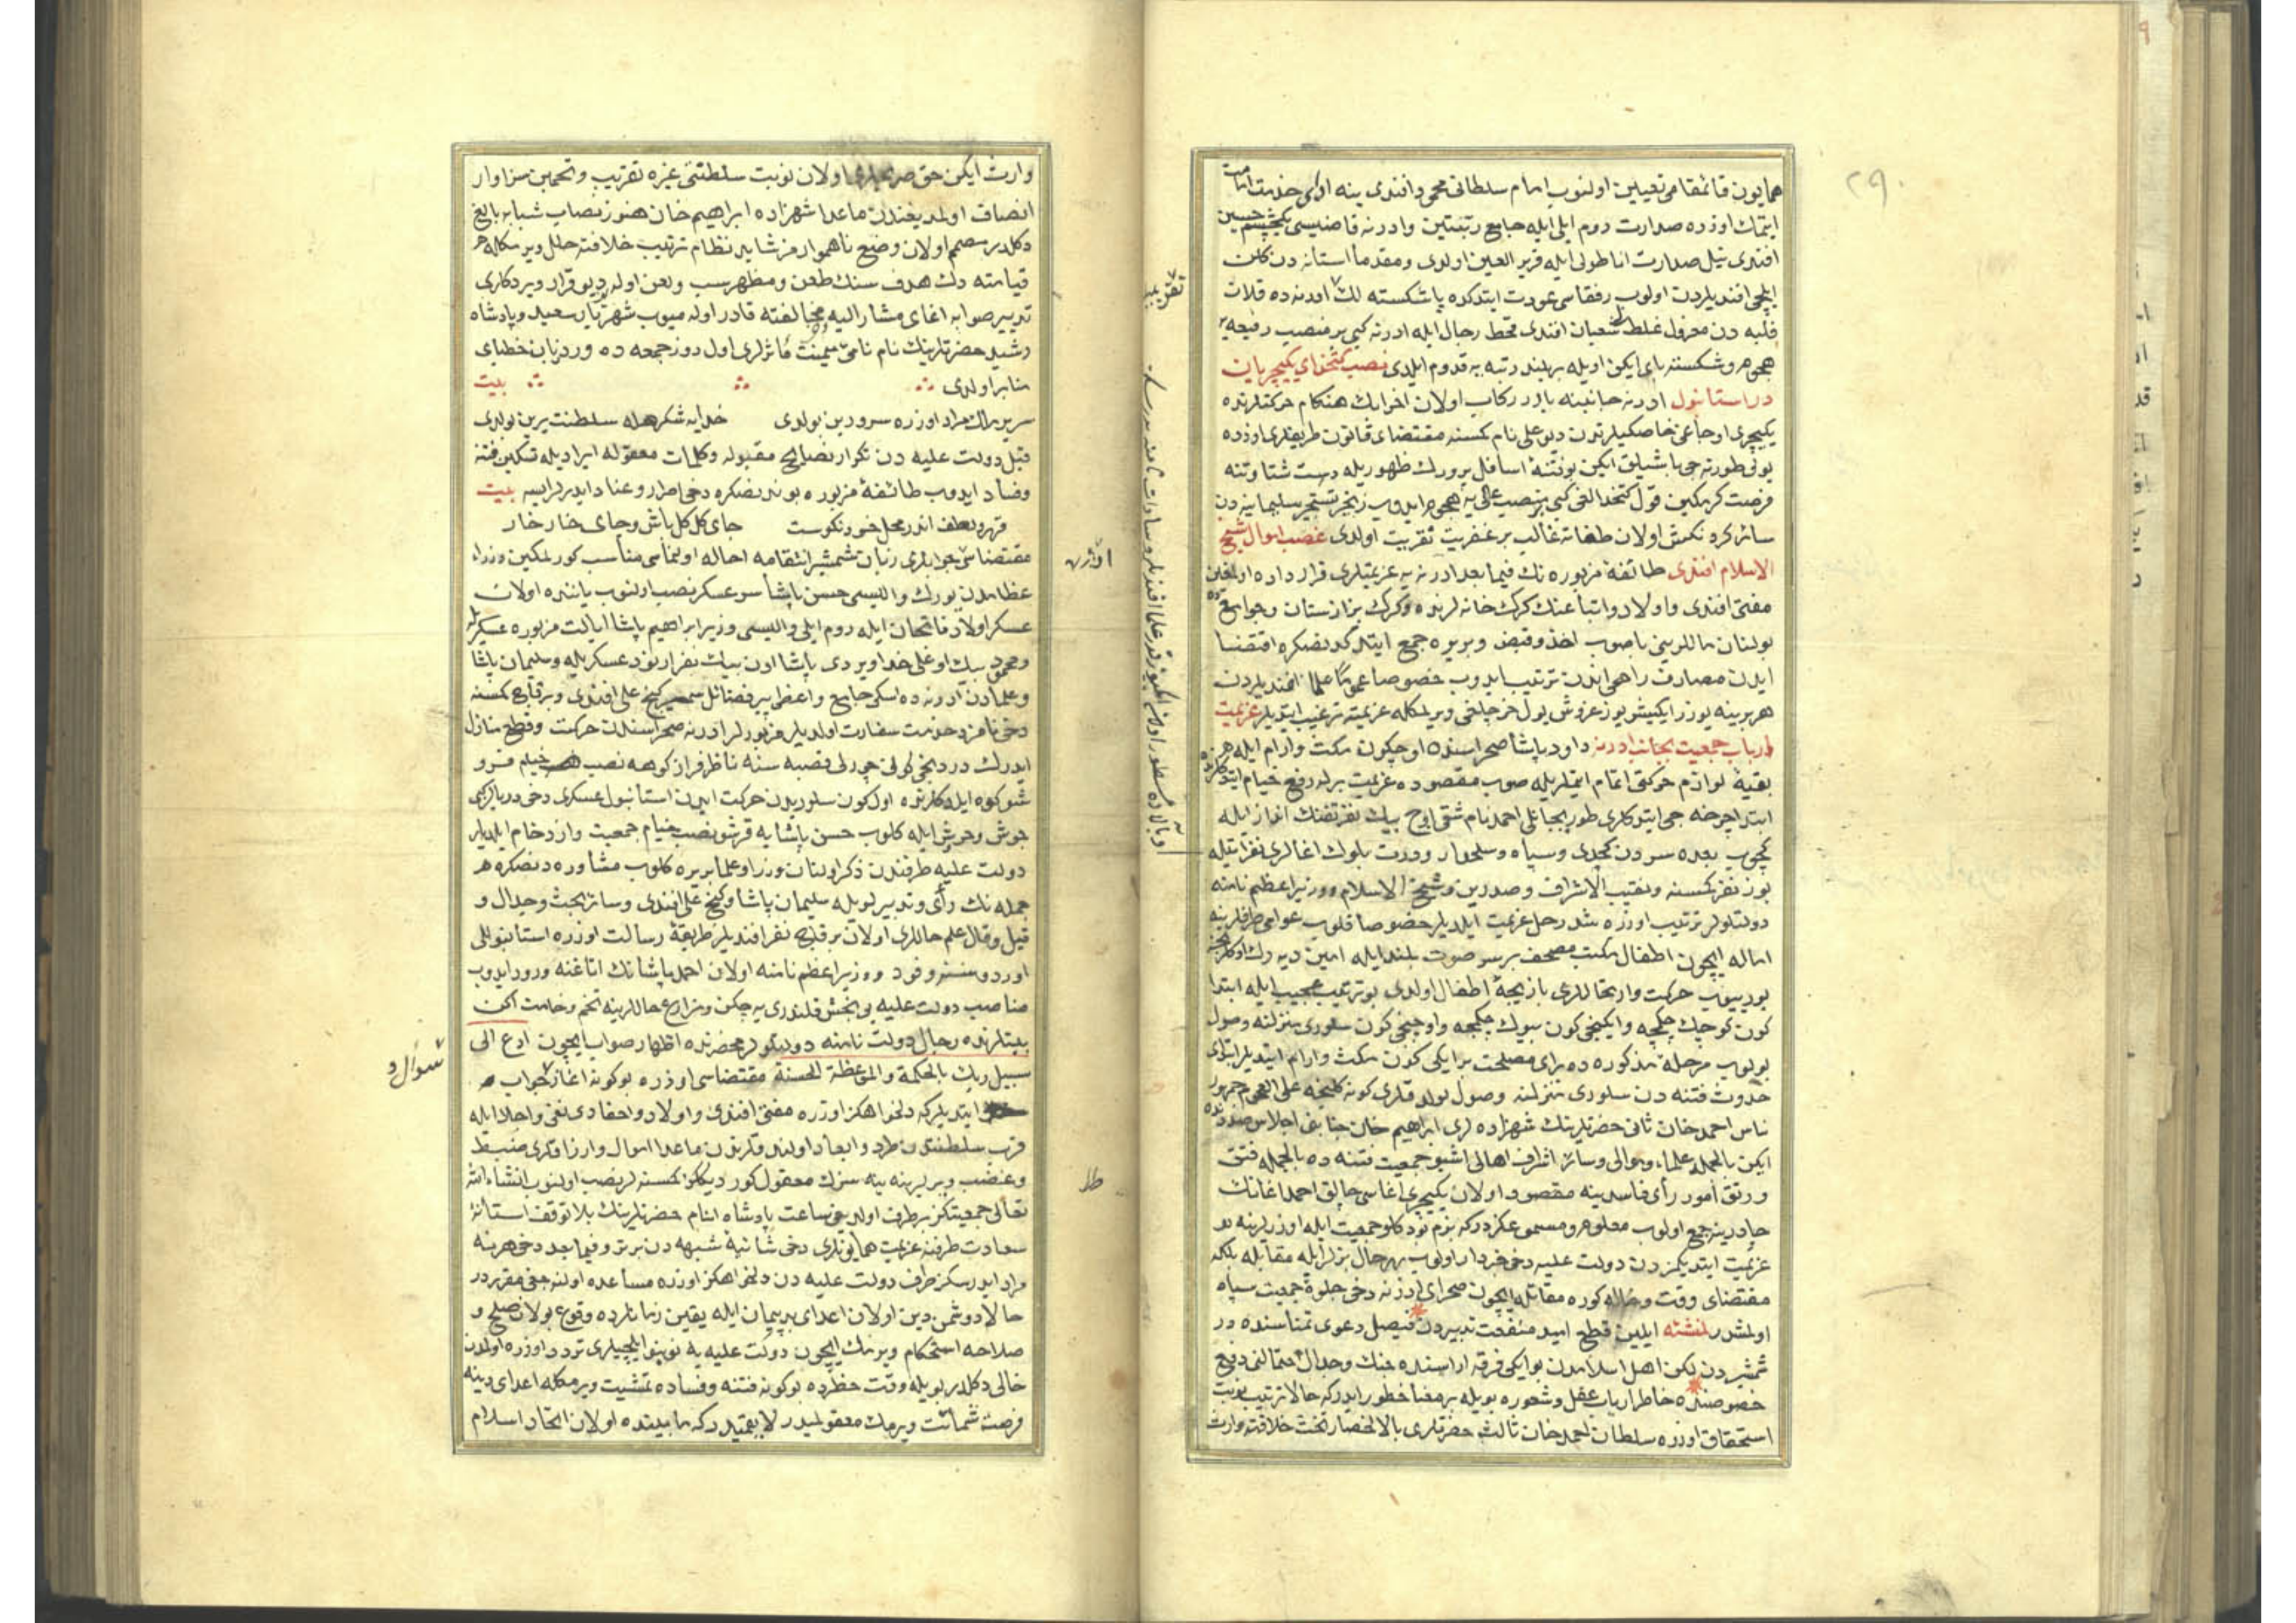 ٢٩٠
همایون قائمقامی تعیین اولنوب امام سلطانی محمود افندی ینه ادای خدمت امامت
ایتمك اوزره صدارت روم ایلی ایله جامع رتبتین وادرنه قاضیسی یكچشم حسین
افندی نیل صدارت اناطولی ایله قریر العین اولدی ومقدما استانه دن كلان
ایلچی افندیلردن اولوب رفقاسی عودت ایتدكده پاشكسته لك ادرنه ده قلان
قلبه دن معزول غلط شعبان افندی محط رجال ایله ادرنه كبی بر منصب رفیعه
هجوم وشكسته پای ایكن اویله بر بلند رتبه یه قدوم ایلدی نصب كتخدای یكیچریان
در استانبول ادرنه جانبنه بالدر ركاب اولان اخرابك هنكام حركتلرنده
یكیچری اوجاغی خاصكیلرندن دلو علی نام كمسنه مقتضای قانون طریقلری اوزره
یولی طورنه جی باشیلق ایكن بو فتنهٔ اسافل پرورك ظهوریله دست شتاوتنه
فرصت كیرمكین قول كتخدالغی كبی بر منصب عالی یه هجوم ایدوب زنجیر تسخیر سلیمانیه دن
سائر كرد نكش اولان طغاته غالب بر عفریت تقریب اولدی غصب اموال شیخ
الاسلام افندی طائفهٔ مزبوره نك فیما بعد ادرنه یه عزیمتلری قرار داده اولمغین
مفتی افندی واولاد واتباعنك كرك خانه لرنده وكرك بزازستان وجوامعده
بولنان ماللرینی باصوب اخذ وقبض وبر یره جمع ایتدكدنصكره اقتضا
ایدن مصارف راهی اندن ترتیب ایدوب خصوصا عموما علما افندیلردن
هر برینه یوزر ایكیشر یوز غروش یول خرجلغی ویرلمكله عزیمته ترغیب ایتدیلر عزیمت
ارباب جمعیت بجانب ادرنه داود پاشا صحراسنده اوچ كون مكث وارام ایله هر
بقیهٔ لوازم حركتی اتمام ایتملریله صوب مقصوده عزیمت برله رفع خیام ایتدكلرنده
ابتدا چرخه جی ایتدكلری طوربجانلی احمد نام شقی اوچ بیك نفر تفنك انداز ایله
كچوب بعده سردن كچدی وسپاه وسلحدار ودرت بلوك اغالری نفراتیله
یوز نفر كمسنه ونقیب الاشراف وصدرین وشیخ الاسلام ووزیر اعظم نامنه
دولتلولر ترتیب اوزره شد رحل عزیمت ایلدیلر خصوصا قلوب عوامی طرفلرینه
اماله ایچون اطفال مكتب مصحف بر سر صوت بلند ایله امین دیه رك اوكلرنجه
یوریوب حركت وارتحاللری بازیچهٔ اطفال اولدی بو ترتیب عجیب ایله ابتدا
كون كوچك چكمجه وایكنجی كون بیوك چكمجه واوچنجی كون سلوری منزلنه وصول
بولوب مرحلهٔ مذكوره ده برای مصلحت بر ایكی كون مكث وارام ایتدیلر ابتدای
حدوث فتنه دن سلوری منزلنه وصول بولدقلری كونه كلنجه علی العموم جمهور
ناس احمد خان ثانی حضرتلرینك شهزاده لری ابراهیم خان جنابنی اجلاس صددنده
ایكن بالجمله علما وموالی وسائر اشراف اهالی اشبو جمعیت فتنه ده بالجمله فتق
ورتق امور رأی فاسدینه مقصود اولان یكیچری اغاسی چالق احمد اغانك
چادرینه جمع اولوب معلوم ومسموعمكزدركه بزم بودكلو جمعیت ایله اوزرلرینه
عزیمت ایتدیكمزدن دولت علیه دخی خبردار اولوب بهر حال بزلر ایله مقابله بلكه
مقتضای وقت وحاله كوره مقاتله ایچون صحرای ادرنه دخی جلوهٔ جمعیت سپاه
اولمشدر لمنشئه ایلین قطع امید منفعت تدبیردن فیصل دعوی تمناسنده در
شمشیردن لكن اهل اسلامدن بو ایكی فرقه اراسنده جنك وجدال احتمالنی دفع
خصوصنده خاطر ارباب عقل وشعوره بویله بر معنا خطور ایدركه حالا ترتیب نوبت
استحقاق اوزره سلطان احمد خان ثالث حضرتلری بالانحصار تخت خلافته وارث
وارث ایكن حق صریحلری اولان نوبت سلطنتی غیره تقریب وتخمین سزاوار
انصاف اولمدیغندن ماعدا شهزاده ابراهیم خان هنوز نصاب شبابه بالغ
دكلدر مصمم اولان وضع ناهموارمز شاید نظام ترتیب خلافته خلل ویرمكله
قیامته دك هدف سنك طعن ومظهر سب ولعن اوله دیو قرار ویردكلری
تدبیر صوابه اغای مشار الیه مخالفته قادر اولمیوب شهریار سعید وپادشاه
رشید حضرتلرینك نام نامی میمنت مأثرلری اول روز جمعه ده ورد زبان خطبای
منابر اولدی بیت
سریر ملك مراد اوزره سرو دین بولدی خدایه شكر هله سلطنت یرین بولدی
قبل دولت علیه دن تكرار نصایح مقبوله وكلمات معقوله ایرادیله تسكین فتنه
وفساد ایدوب طائفهٔ مزبوره بوندنصكره دخی اصرار وعناد ایدرلر ایسه بیت
قهر ولطف اندر محل خود نكوست جای كل كل باش وجای خار خار
مقتضاسنجه جوابلری زبان شمشیر انتقامه احاله اولنماسی مناسب كورلمكین وزراء
عظامدن یورك والیسی حسن پاشا سرعسكر نصب اولنوب یاننده اولان
عسكر اولاد فاتحان ایله روم ایلی والیسی وزیر ابراهیم پاشا ایالت مزبوره عسكریله
ومحمود بیك اوغلی خداویردی پاشا اون بیك نفر ارنود عسكریله وسلیمان پاشا
وعلمادن ادرنه ده اسكی جامع واعظی پیر فضائل سمیر كنج علی افندی وبر قاچ كمسنه
دخی نامزد خدمت سفارت اولدیلر مزبورلر ادرنه صحراسندن حركت وقطع منازل
ایدرك دردنجی كونی چورلی قصبه سنه ناظر فراز كوهه نصب خیام فر و
شكوه ایلدكلرنده اول كون سلوریدن حركت ایدن استانبول عسكری دخی دریا كبی
جوش وخروش ایله كلوب حسن پاشایه قرشو نصب خیام جمعیت وازدحام ایلدیلر
دولت علیه طرفندن ذكر اولنان وزرا وعلما بر یره كلوب مشاوره دنصكره
جمله نك رأی وتدبیرلویله سلیمان پاشا وكنج علی افندی وسائر بحث وجدال و
قیل وقال علم حاللری اولان بر قاچ نفر افندیلر طریقهٔ رسالت اوزره استانبوللی
اوردوسنه وفود ووزیر اعظم نامنه اولان احمد پاشانك اتاغنه ورود ایدوب
مناصب دولت علیه یی بخش قلندری یه چكن ومزارع حاللرینه تخم وخامت اكن
بیتلرنده رجال دولت نامنه دولتلولر محضرنده اظهار صواب ایچون ادع الی
سبیل ربك بالحكمة والموعظة الحسنة مقتضاسی اوزره بو كونه اغاز جواب
ایتدیلركه دلخواهكز اوزره مفتی افندی واولاد واحفادی نفی واجلا ایله
قرب سلطنتدن طرد وابعاد اولندقلرندن ماعدا اموال وارزاقلری ضبط
وغصب ویرلرینه ینه سزك معقول كوردیككز كمسنه لر نصب اولنوب انشاء الله
تعالی جمعیتكز بر طرف اولدیغی ساعت پادشاه انام حضرتلرینك بلا توقف استانهٔ
سعادت طرفنه عزیمت همایونلری دخی شائبهٔ شبهه دن بری وفیما بعد دخی هر نه
مراد ایدرسكز طرف دولت علیه دن دلخواهكز اوزره مساعده اولنه جغی مقرردر
حالا دوشمن دین اولان اعدای بد پیمان ایله یقین زمانلرده وقوع بولان صلح و
صلاحه استحكام ویرمك ایچون دولت علیه یه نوبنو ایلچیلری تردد اوزره اولمدن
خالی دكلدر بویله وقت خطرده بو كونه فتنه وفساده تمشیت ویرمكله اعدای دینه
فرصت شماتت ویرمك معقولمیدر لا یعتمدركه مابینده اولان اتحاد اسلام
اوازه
شوال و